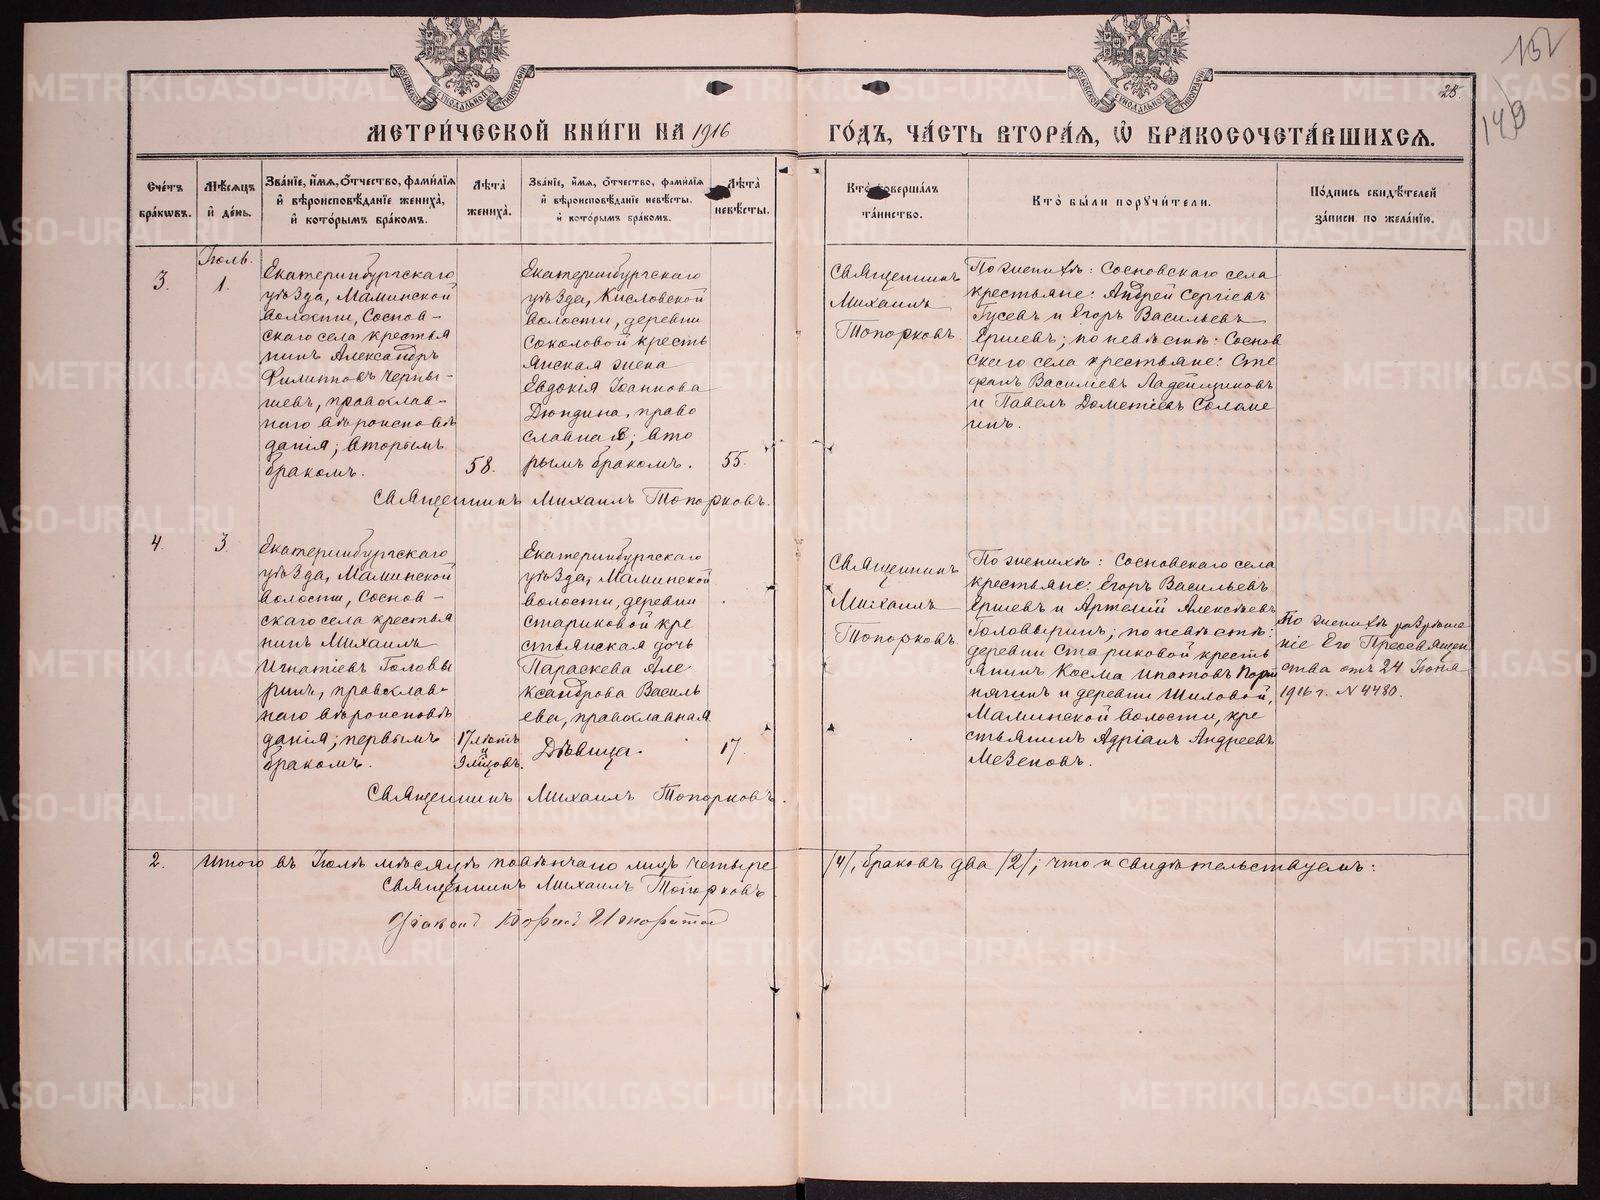 152
149
25.
МЕТРИ́ЧЕСКОЙ КНИ́ГИ НА 1916 ГО́ДЪ, ЧА́СТЬ ВТОРА́Я, Ѽ БРАКОСОЧЕТА́ВШИХСЯ.
Сче́тъ
бра́кωвъ.
Мѣ́сяцъ
и҆ де́нь.
Зва́нїе, и҆́мя, ѻ҆́тчество, фами́лїя
и҆ вѣроисповѣ́данїе жениха̀,
и҆ кото́рымъ бра́комъ.
Лѣ́та
жениха̀.
Зва́нїе, и҆́мя, ѻ҆́тчество, фами́лїя
и҆ вѣроисповѣ́данїе невѣ́сты.
и҆ кото́рымъ бра́комъ.
Лѣ́та
невѣ́сты.
Кто̀ соверша́лъ
та́инство.
Кто̀ бы́ли порꙋчи́тели.
По́дпись свидѣ́телей
за́писи по жела́нїю.
3.
Іюль.
1.
Екатеринбургскаго
уѣзда, Маминской
волости, Соснов-
скаго села крестья
нинъ Александръ
Филипповъ Черны-
шевъ, православ-
наго вѣроисповѣ
данія; вторымъ
бракомъ.
58.
Екатеринбургскаго
уѣзда, Кисловской
волости, деревни
Соколовой кресть
янская жена
Евдокія Іоаннова
Дюндина, право
славная; вто
рымъ бракомъ.
55.
Священникъ
Михаилъ
Топорковъ.
По женихѣ: Сосновскаго села
крестьяне: Андрей Сергіевъ
Гусевъ и Егоръ Васильевъ
Ершевъ; по невѣстѣ: Соснов
скаго села крестьяне: Сте
фанъ Василіевъ Ладейщиковъ
и Павелъ Дометіевъ Соломе
инъ.
Священникъ Михаилъ Топорковъ.
4.
3.
Екатеринбургскаго
уѣзда, Маминской
волости, Соснов-
скаго села крестья
нинъ Михаилъ
Игнатіевъ Головы
ринъ, православ-
наго вѣроисповѣ
данія; первымъ
бракомъ.
17 лѣтъ
и
9 мѣсцовъ.
Екатеринбургскаго
уѣзда, Маминской
волости, деревни
Стариковой кре
стьянская дочь
Параскева Але
ксандрова Василь
ева, православная
Дѣвица.
17.
Священникъ
Михаилъ
Топорковъ.
По женихѣ: Сосновскаго села
крестьяне: Егоръ Васильевъ
Ершевъ и Артемій Алексѣевъ
Головыринъ; по невѣстѣ:
деревни Стариковой кресть
янинъ Косма Ипатовъ Порт
нягинъ и деревни Шиловой,
Маминской волости, кре
стьянинъ Адріанъ Андреевъ
Мезеновъ.
По женихѣ разрѣше
ніе Его Преосвящен
ства отъ 24 Іюня
1916 г. № 4480.
Священникъ Михаилъ Топорковъ.
2. Итого въ Іюлѣ мѣсяцѣ повѣнчано лицъ четыре /4/, браковъ два /2/; что и свидѣтельствуемъ:
Священникъ Михаилъ Топорковъ.